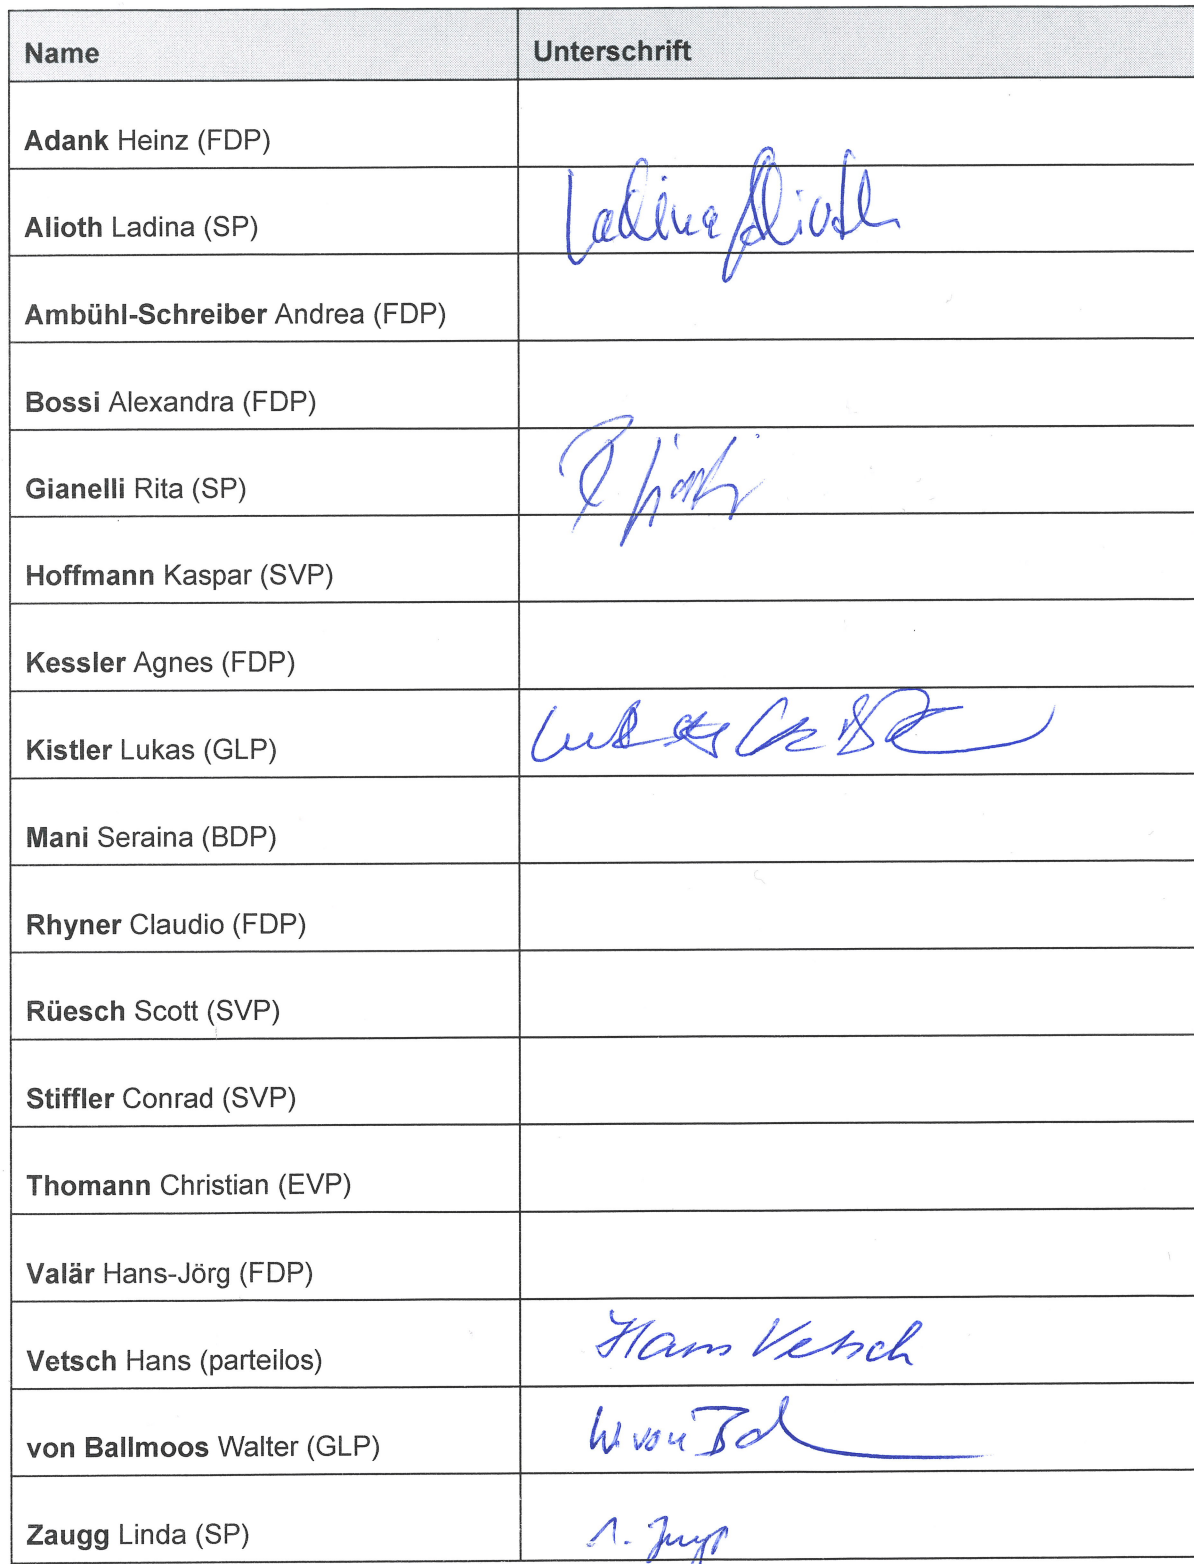 Name Unterschrift
Adank Heinz (FDP)
Alioth Ladina (SP) Ladina Alioth
Ambühl-Schreiber Andrea (FDP)
Bossi Alexandra (FDP)
Gianelli Rita (SP)
Hoffmann Kaspar (SVP)
Kessler Agnes (FDP)
Kistler Lukas (GLP) Lukas
Mani Seraina (BDP)
Rhyner Claudio (FDP)
Rüesch Scott (SVP)
Stiffler Conrad (SVP)
Thomann Christian (EVP)
Valär Hans-Jörg (FDP)
Vetsch Hans (parteilos) Hans Vetsch
von Ballmoos Walter (GLP) W. von
Zaugg Linda (SP)